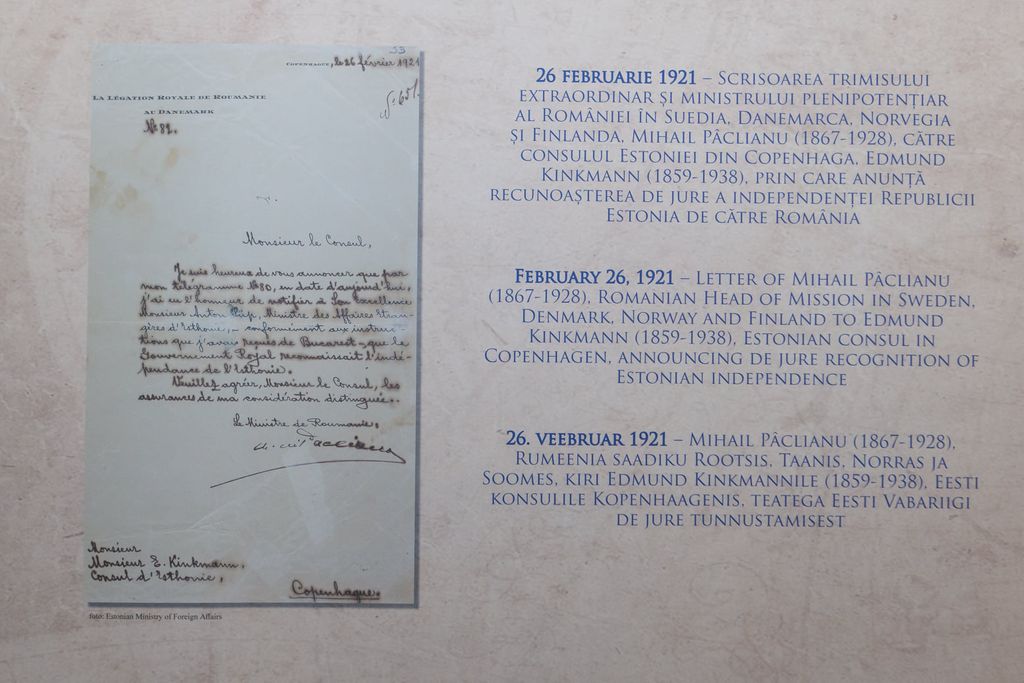 53
Copenhague, le 26 février 1921
No 651.
La Légation Royale de Roumanie
au Danemark
No 82.
Monsieur le Consul,
Je suis heureux de vous annoncer que par
mon télégramme No 80, en date d'aujourd'hui,
j'ai eu l'honneur de notifier à Son Excellence
Monsieur Anton Piip, Ministre des Affaires Etran-
gères d'Esthonie, - conformément aux instruc-
tions que j'avais reçues de Bucarest - que le
Gouvernement Royal reconnaissait l'indé-
pendance de l'Esthonie.
Veuillez agréer, Monsieur le Consul, les
assurances de ma considération distinguée.
Le Ministre de Roumanie:
Monsieur
Monsieur E. Kinkmann,
Consul d'Esthonie,
Copenhague.
foto: Estonian Ministry of Foreign Affairs
26 FEBRUARIE 1921 – SCRISOAREA TRIMISULUI
EXTRAORDINAR ȘI MINISTRULUI PLENIPOTENȚIAR
AL ROMÂNIEI ÎN SUEDIA, DANEMARCA, NORVEGIA
ȘI FINLANDA, MIHAIL PÂCLIANU (1867-1928), CĂTRE
CONSULUL ESTONIEI DIN COPENHAGA, EDMUND
KINKMANN (1859-1938), PRIN CARE ANUNȚĂ
RECUNOAȘTEREA DE JURE A INDEPENDENȚEI REPUBLICII
ESTONIA DE CĂTRE ROMÂNIA
FEBRUARY 26, 1921 – LETTER OF MIHAIL PÂCLIANU
(1867-1928), ROMANIAN HEAD OF MISSION IN SWEDEN,
DENMARK, NORWAY AND FINLAND TO EDMUND
KINKMANN (1859-1938), ESTONIAN CONSUL IN
COPENHAGEN, ANNOUNCING DE JURE RECOGNITION OF
ESTONIAN INDEPENDENCE
26. VEEBRUAR 1921 – MIHAIL PÂCLIANU (1867-1928),
RUMEENIA SAADIKU ROOTSIS, TAANIS, NORRAS JA
SOOMES, KIRI EDMUND KINKMANNILE (1859-1938), EESTI
KONSULILE KOPENHAAGENIS, TEATEGA EESTI VABARIIGI
DE JURE TUNNUSTAMISEST